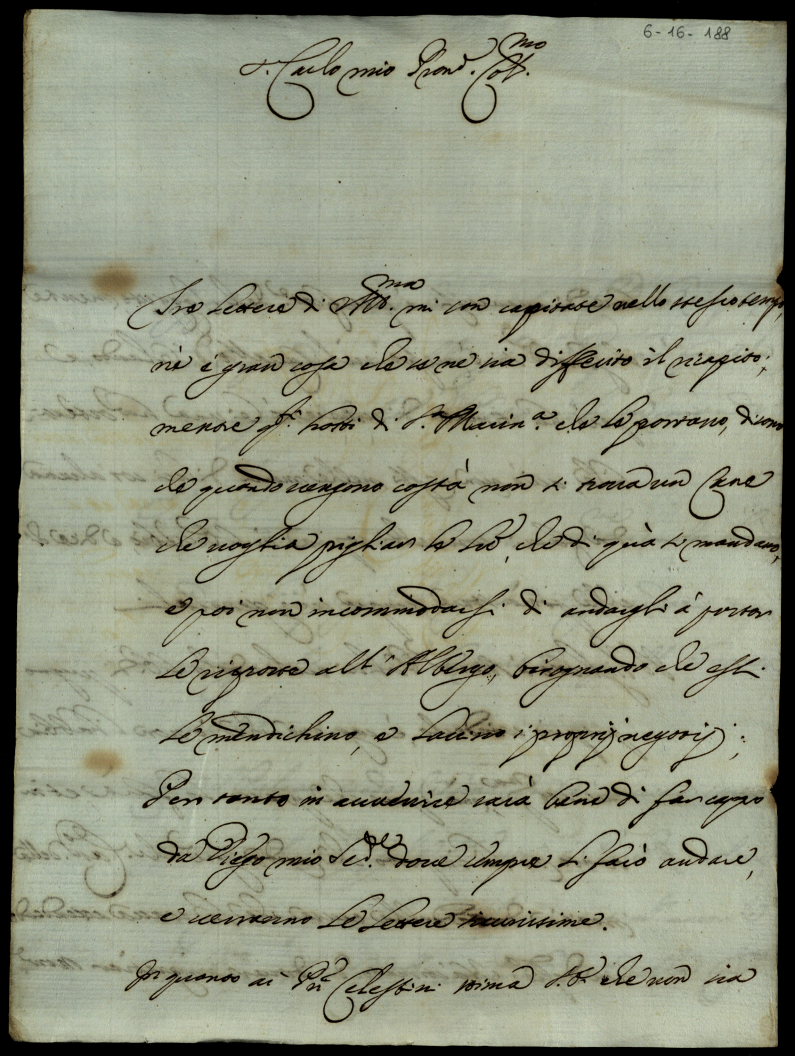 6-16-188
S.r Carlo mio Pron.e Col.mo
Tre lettere di V.S. Ill.ma mi son capitate nello stesso tempo,
nè è gran cosa che se ne sia differito il recapito;
mentre q.ti di S.ta Marin.a che le portano, dicono
che quando vengono costà non si trova un Cane
che voglia pigliar le l.re, che di quà si mandano,
e poi non incommodarsi di andargli à portar
le risposte all' Albergo, bisognando che essi
le mendichino, e lascino i proprij negozij;
Per tanto in avvenire sarà bene di far capo
da Diego mio Sed.le dove sempre li farò andare,
e verranno le lettere sicurissime.
In quanto ai P.ri Celestini stima S.S. che non sia